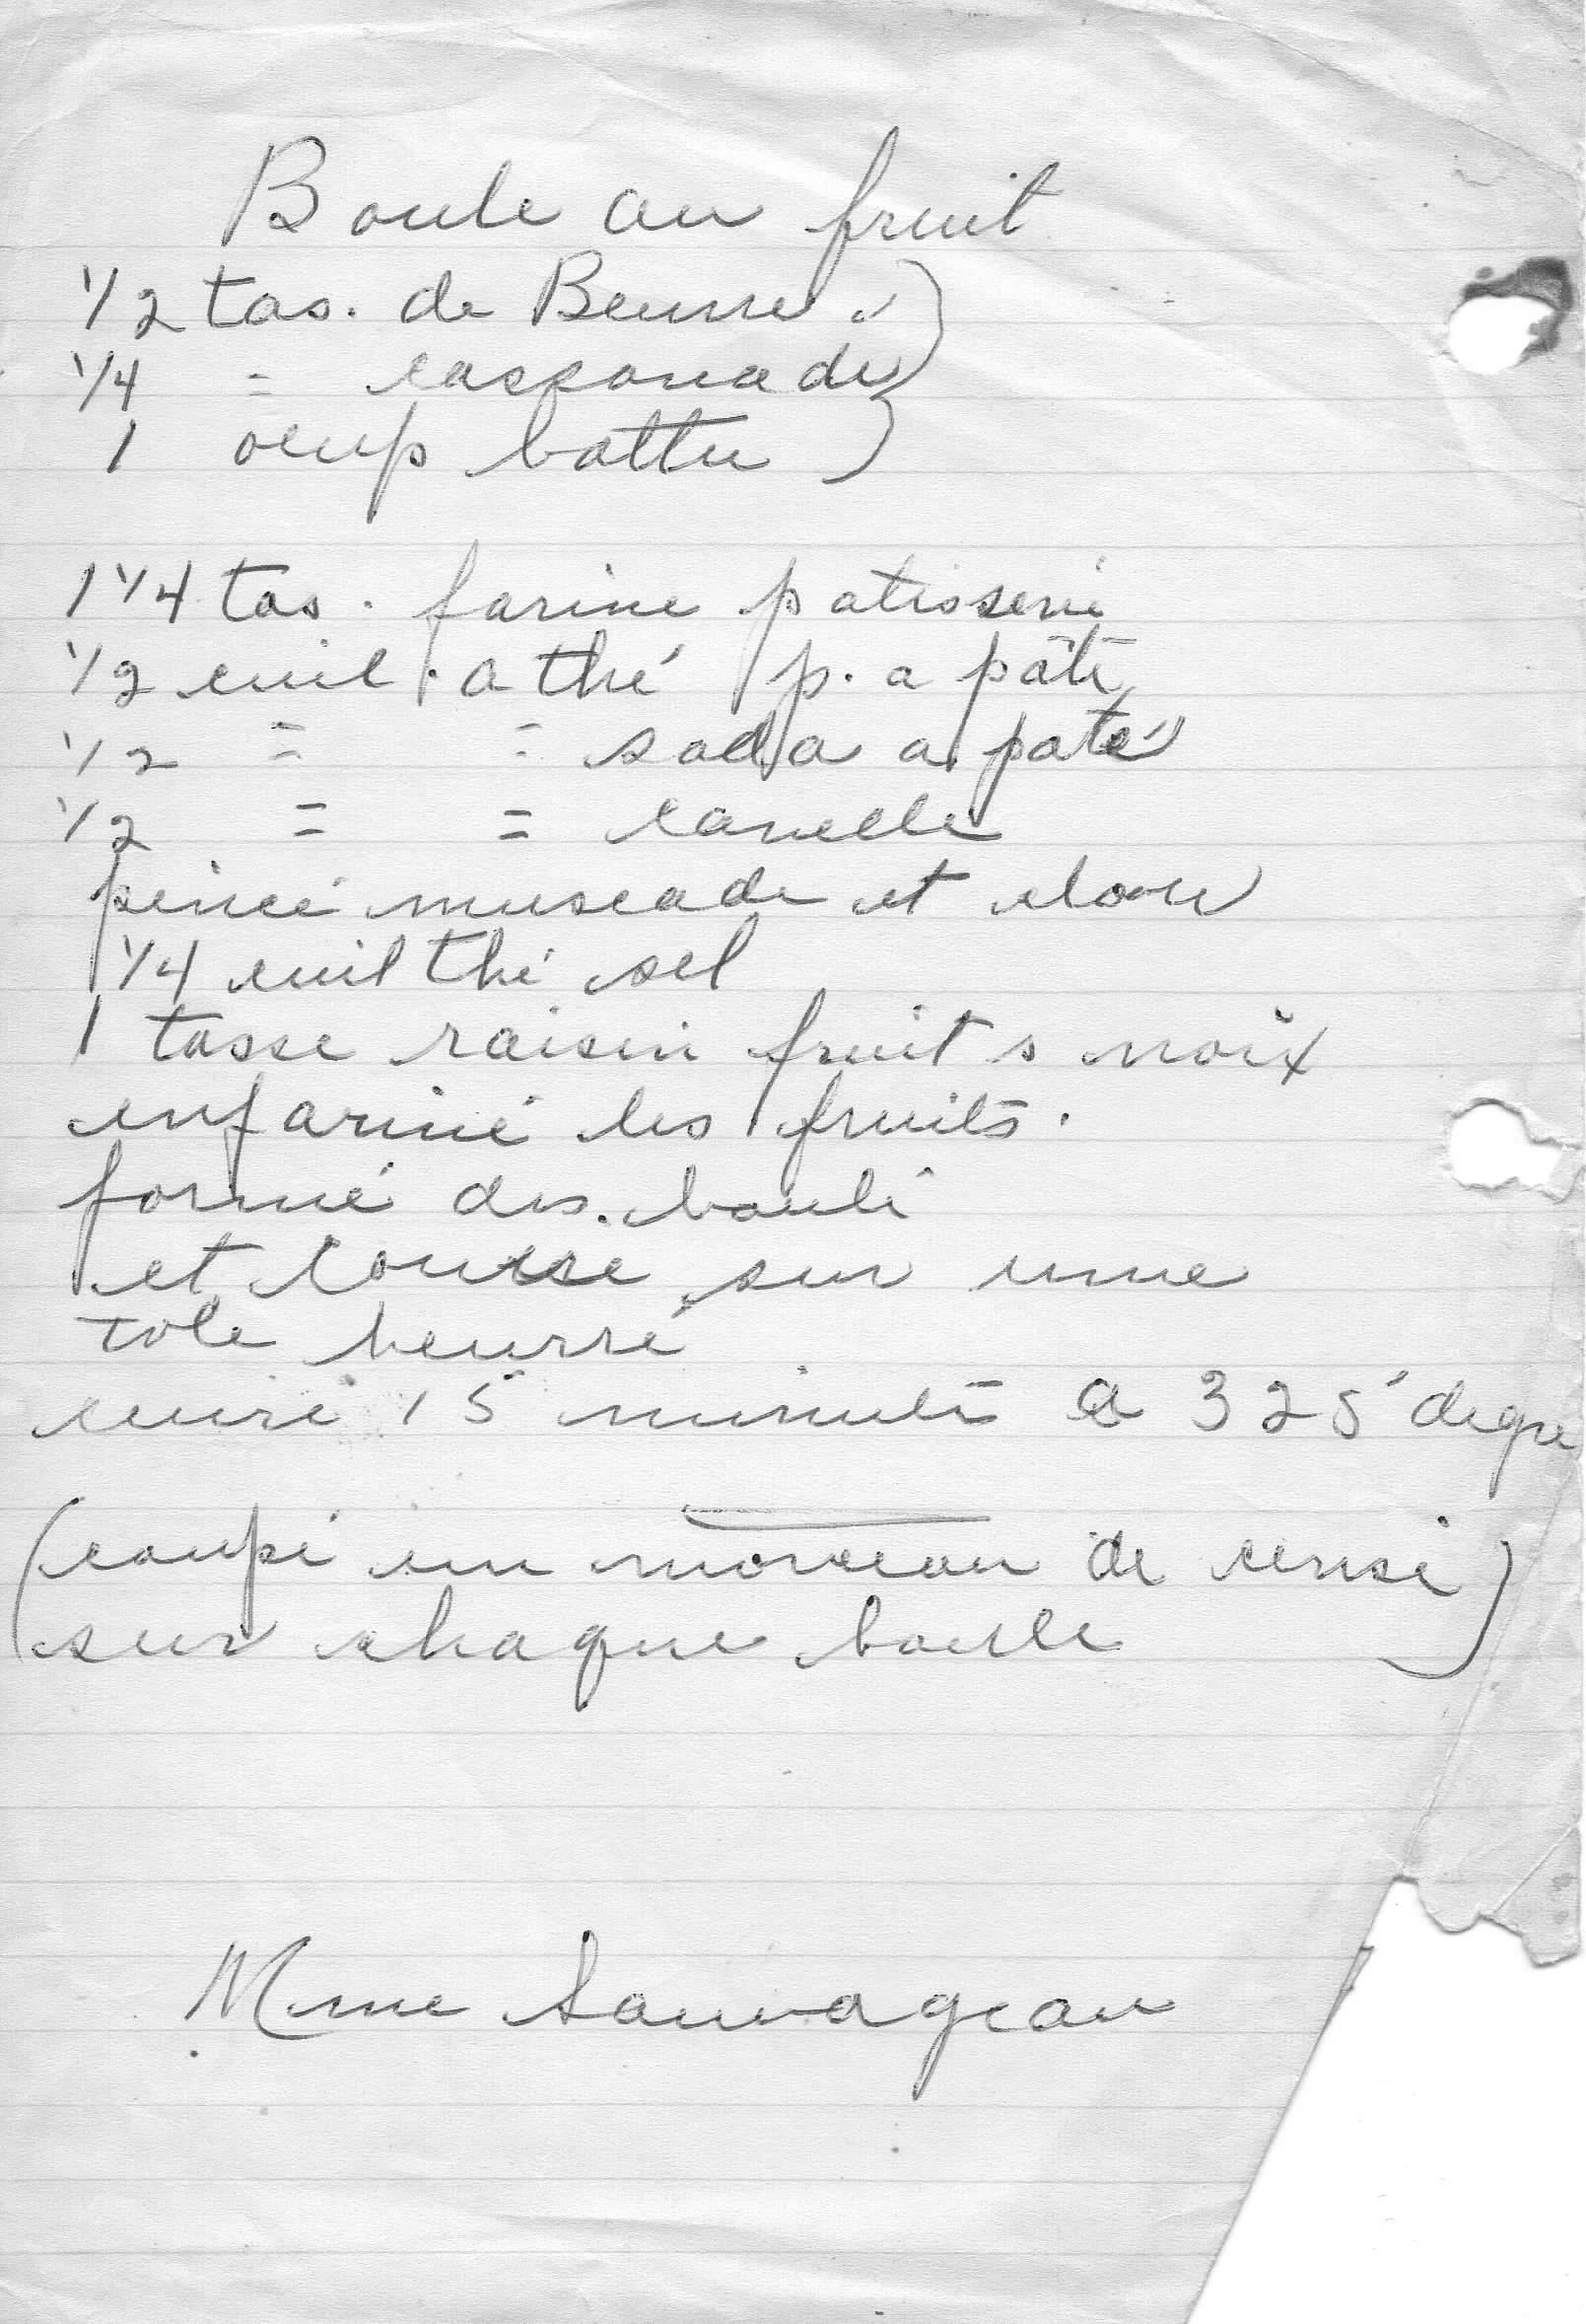 Boule au fruit
1/2 tas. de Beurre
1/4 = cassonade
1 oeuf battu
1 1/4 tas. farine patisserie
1/2 cuil. a thé p. a pâte
1/2 = = soda a pate
1/2 = = canelle
pincé muscade et clou
1/4 cuil thé sel
1 tasse raisin fruits noix
enfariné les fruits.
formé des boule
et sur une
tole beurré
cuire 15 minute a 325° degre
(coupé un morceau de cerise)
sur chaque boule
Mme Sauvageau